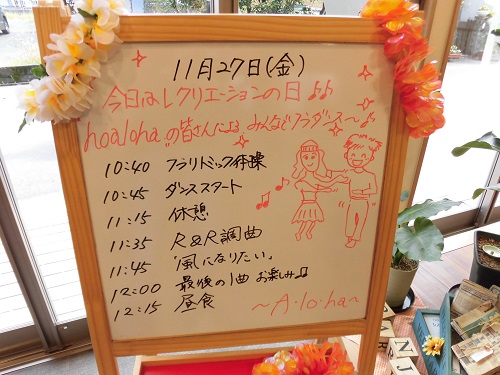 11月27日(金)
今日はレクリエーションの日♪♪
hoaloha"の皆さんによる みんなでフラダンス〜♪
10:40 フラリトミック体操
10:45 ダンススタート
11:15 休憩
11:35 R&R調曲
11:45 「風になりたい」
12:00 最後の1曲 お楽しみ♫
12:15 昼食
〜A・lo・ha〜